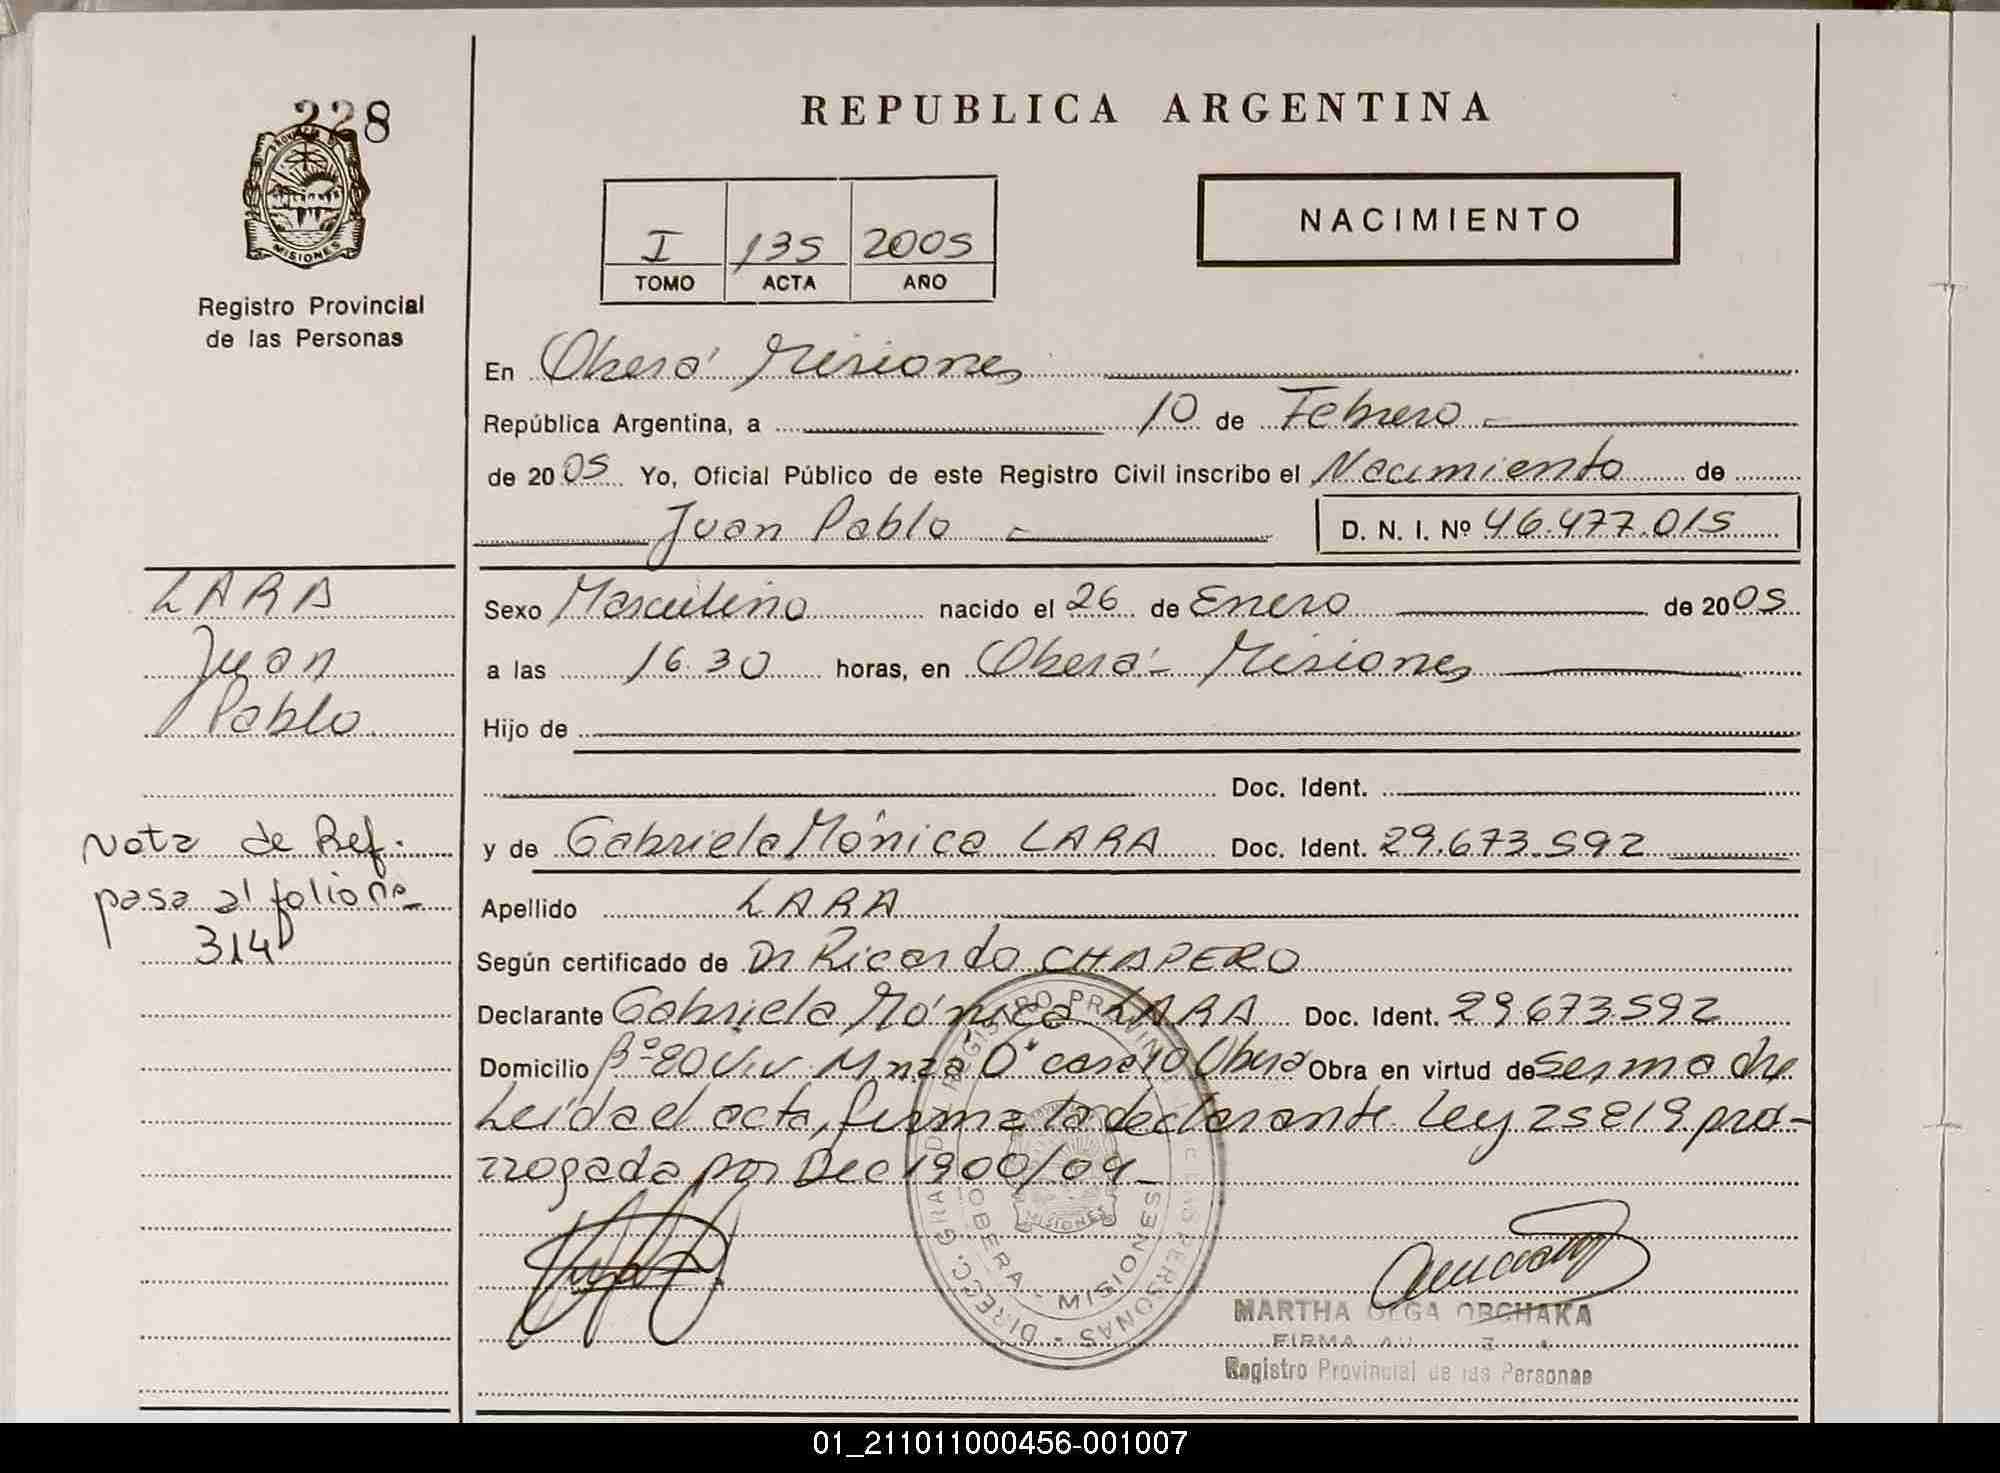 228
PROVINCIA DE
MISIONES
Registro Provincial
de las Personas
REPUBLICA ARGENTINA
I 135 2005
TOMO ACTA AÑO
NACIMIENTO
En Oberá Misiones
República Argentina, a 10 de Febrero
de 2005 Yo, Oficial Público de este Registro Civil inscribo el Nacimiento de
Juan Pablo D. N. I. Nº 46.477.015
LARA
Juan
Pablo
Nota de Ref.
pasa al folio nº
314
Sexo Masculino nacido el 26 de Enero de 2005
a las 16.30 horas, en Oberá - Misiones
Hijo de
Doc. Ident.
y de Gabriela Mónica LARA Doc. Ident. 29.673.592
Apellido LARA
Según certificado de Dr Ricardo CHAPERO
Declarante Gabriela Mónica LARA Doc. Ident. 29.673.592
Domicilio Bº 80 Viv Mnza D casa 10 Oberá Obra en virtud de ser madre
Leída el acta, firma la declarante. Ley 25819 pro-
rrogada por Dec 1900/04
DIRECC. GRAL. DEL REGISTRO PROVINCIAL DE LAS PERSONAS
OBERA - MISIONES
MISIONES
MARTHA OLGA OBCHAKA
FIRMA
Registro Provincial de las Personas
01_211011000456-001007